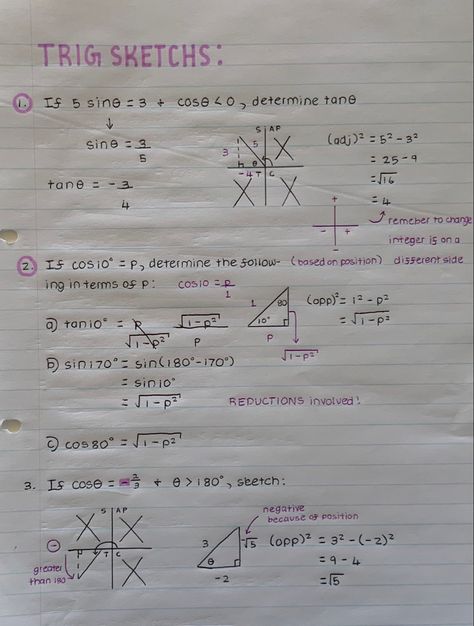 TRIG SKETCHS:
1. If 5 sinθ = 3 + cosθ < 0, determine tanθ
↓
sinθ = 3/5
tanθ = -3/4
S A P
3 5 θ
-4 T C
(adj)² = 5² - 3²
= 25 - 9
= √16
= 4
+
- +
-
remeber to change
integer if on a
different side
(based on position)
2. If cos10° = P, determine the follow-
ing in terms of P: cos10 = P/1
a) tan10° = P/√1-P² √1-P²/P
1 80 10° P
√1-P²
(opp)² = 1² - P²
= √1-P²
b) sin170° = sin(180°-170°)
= sin10°
= √1-P²
REDUCTIONS involved!
c) cos80° = √1-P²
3. If cosθ = -2/3 + θ > 180°, sketch:
S A P
T C
greater
than 180
negative
because of position
3 -√5 θ
-2
(opp)² = 3² - (-2)²
= 9 - 4
= √5